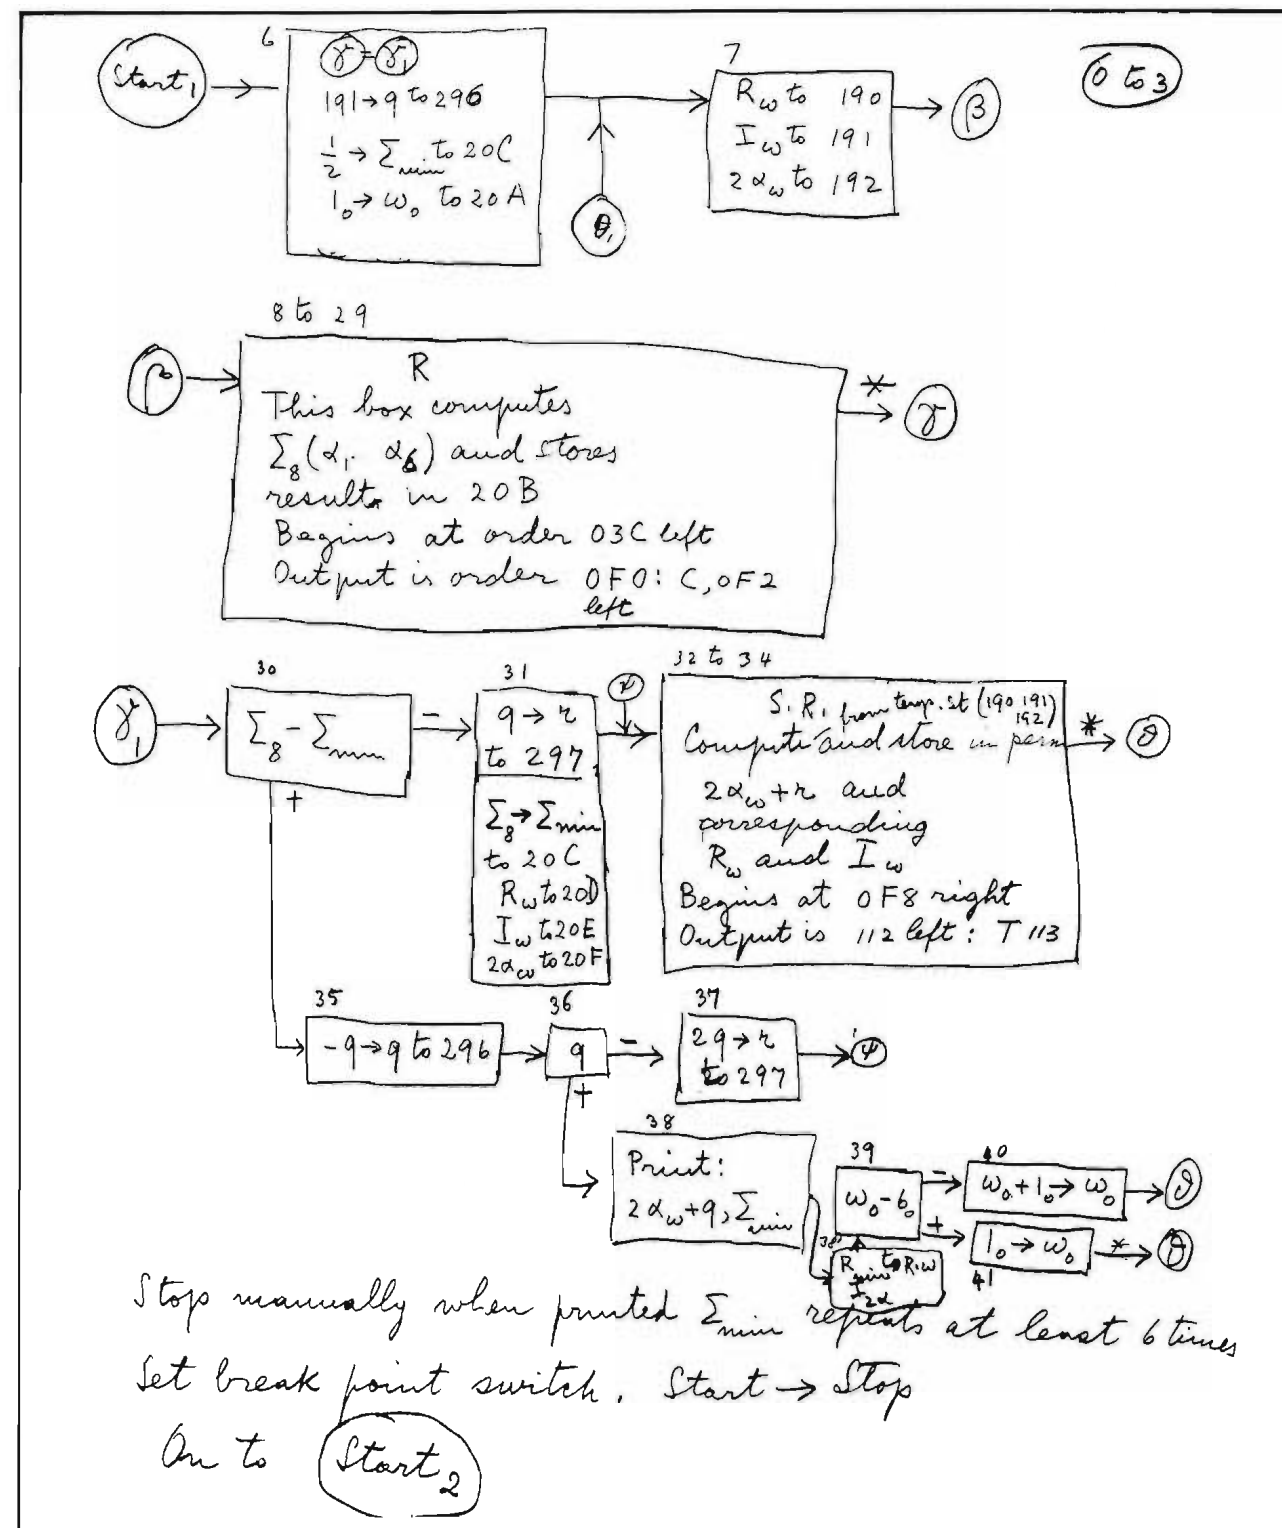 Start₁
6
γ = γ₁
191 → q to 296
1/2 → Σmin to 20C
1₀ → ω₀ to 20A
θ₁
7
Rω to 190
Iω to 191
2αω to 192
β
6 to 3
8 to 29
R
This box computes
Σ₈(α₁. α₆) and stores
results in 20B
Begins at order 03C left
Output is order 0F0: C, 0F2
left
*
γ
γ₁
30
Σ₈ - Σmin
-
+
31
q → r
to 297.
Σ₈ → Σmin
to 20C
Rω to 20D
Iω to 20E
2αω to 20F
ψ
32 to 34
S.R. from temp. st (190 191)
192
Compute and store in perm
2αω + r and
corresponding
Rω and Iω
Begins at 0F8 right
Output is 112 left: T 113
*
θ
35
-q → q to 296
36
q
-
+
37
2q → r
to 297
ψ
38
Print:
2αω + q, Σmin
38'
Rmin to R, ω
I 2α
39
ω₀ - 6₀
-
+
40
ω₀ + 1₀ → ω₀
θ
1₀ → ω₀
41
*
θ
Stop manually when printed Σmin repeats at least 6 times
Set break point switch. Start → Stop
On to Start₂